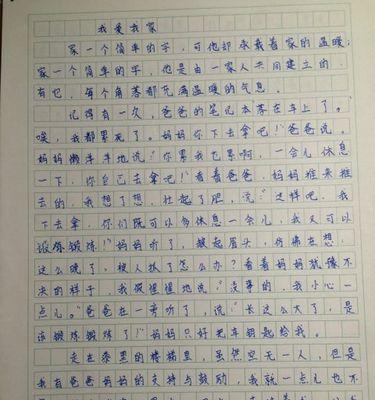 我爱我家
家一个简单的字，可他却承载着家的温暖；
家一个简单的字，他是由一家人共同建立的.
有它，每个角落都充满温暖的气息。
记得有一次，爸爸的笔记本落在车上了。"
唉，我都累死了。妈妈你下去拿吧！"爸爸说。
妈妈懒洋洋地说："你累我也累啊，一会儿休息
一下，你自己去拿吧！"看着爸爸、妈妈推来推
去的，我想了想，壮起了胆，说："这样吧，我
下去拿，你们既可以多休息一会儿，我又可以
锻炼锻炼！"妈妈听了，皱起眉头，仿佛在想：
这么晚了，被人抓了怎么办？看着妈妈犹豫不
决的样子，我慢慢地说："没事的，我小心一
点儿。"爸爸在一旁听了，说："长这么大了，是
该锻炼锻炼了！"妈妈只好把车钥匙给我。
走在漆黑的楼梯里，虽然空无一人，但是
我有爸爸妈妈的支持与鼓励，我就一点儿也不